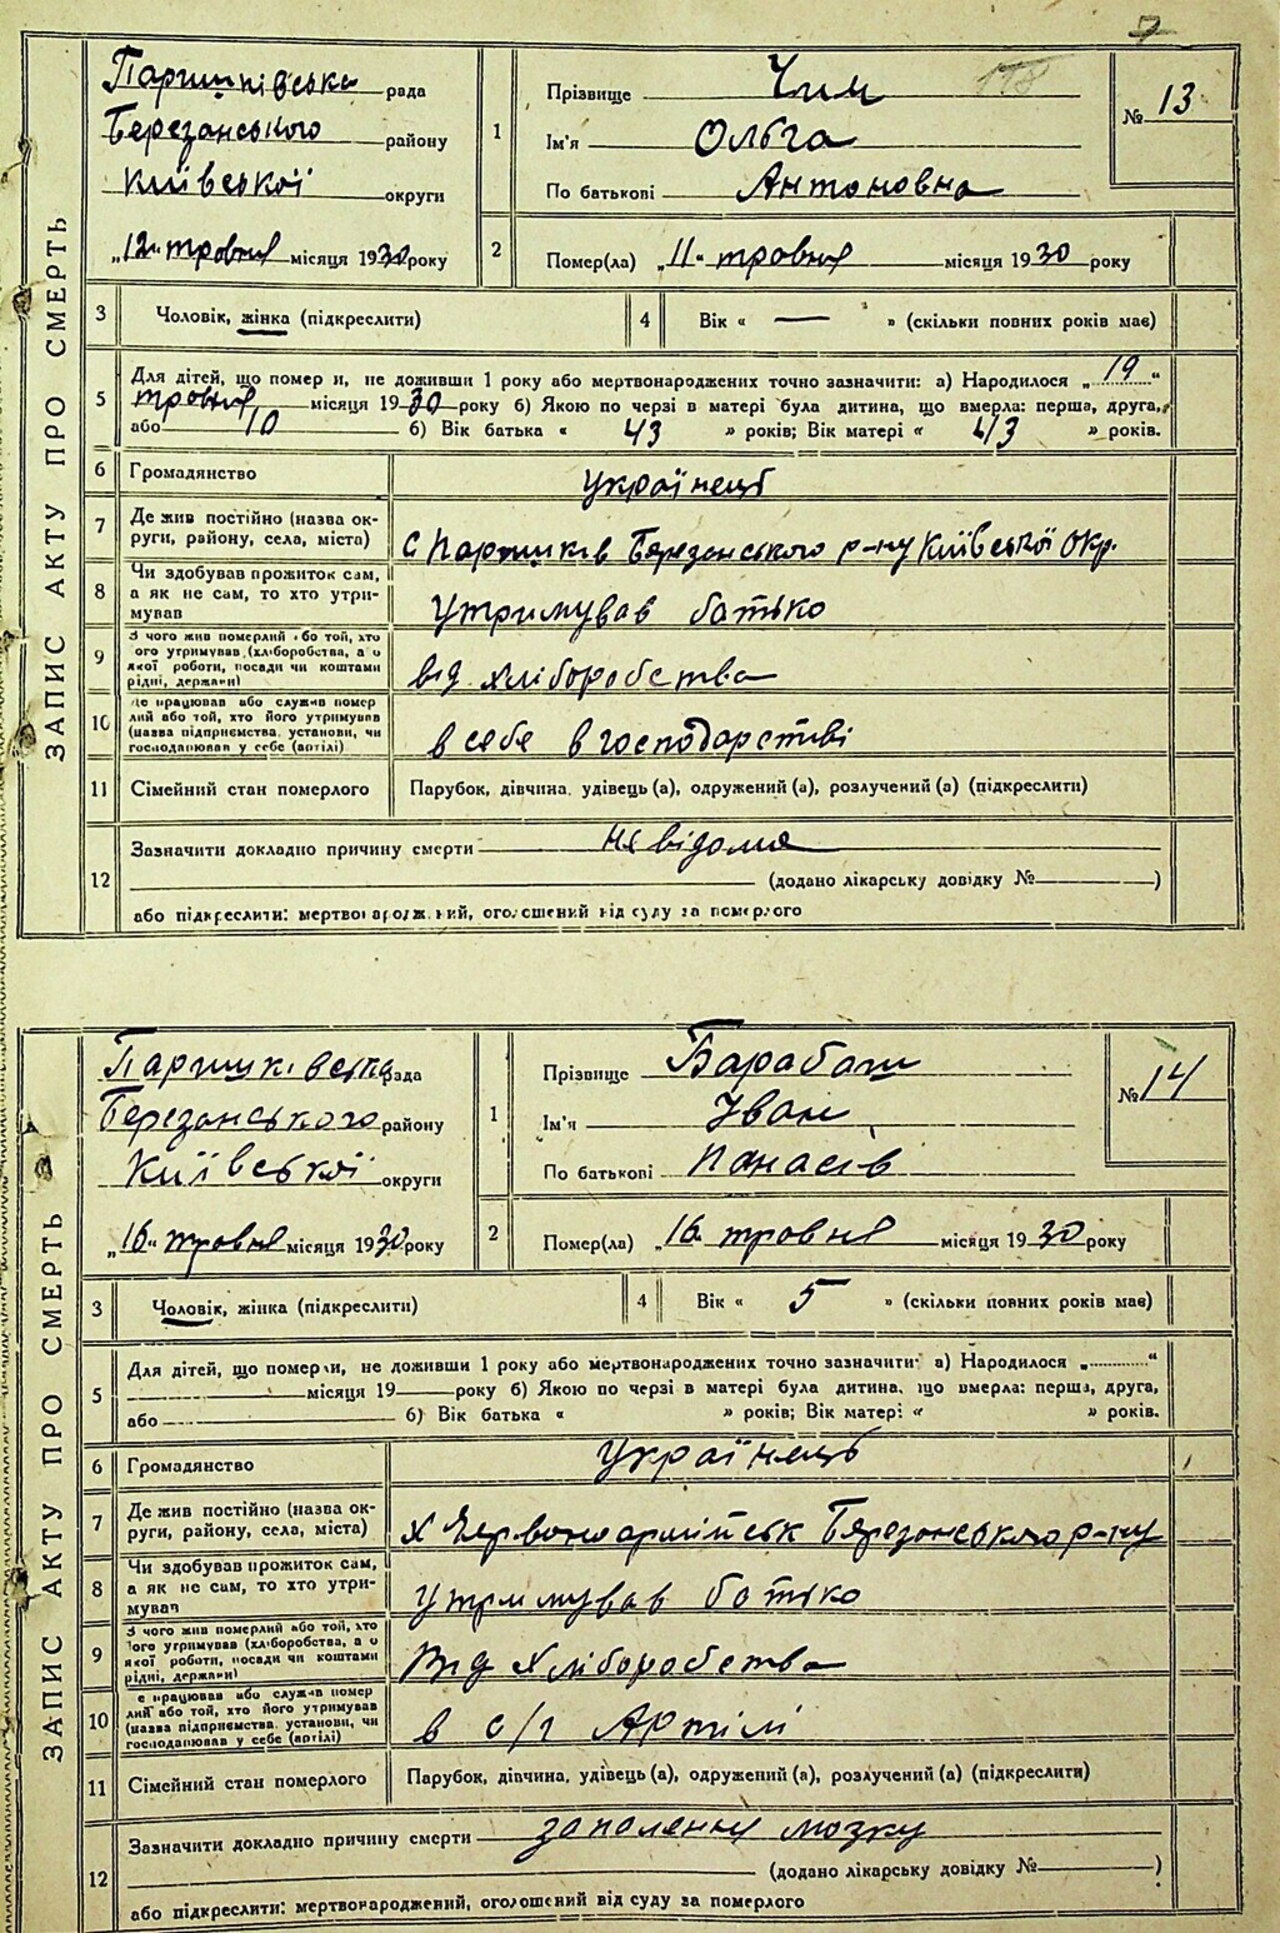 7
ЗАПИС АКТУ ПРО СМЕРТЬ
Паришківська рада
Березанського району
Київської округи
„12" травня місяця 1930 року
1
Прізвище Чим
Ім'я Ольга
По батькові Антоновна
№ 13
2
Помер(ла) „11" травня місяця 1930 року
3 Чоловік, жінка (підкреслити)
4 Вік « — » (скільки повних років має)
5 Для дітей, що помер и, не доживши 1 року або мертвонароджених точно зазначити: а) Народилося „19"
травня місяця 1930 року б) Якою по черзі в матері була дитина, що вмерла: перша, друга,
або 10 б) Вік батька « 43 » років; Вік матері « 43 » років.
6 Громадянство українець
7 Де жив постійно (назва ок-
руги, району, села, міста) с Паришків Березанського р-ну Київської Окр.
8 Чи здобував прожиток сам,
а як не сам, то хто утри-
мував утримував батько
9 З чого жив померлий або той, хто
ого утримував (хліборобства, а о
якої роботи, посади чи коштами
рідні, держави) від хліборобства
10 це працював або служив помер
лий або той, хто його утримував
(назва підприємства, установи, чи
господарював у себе (артілі) в себе в господарстві
11 Сімейний стан померлого Парубок, дівчина, удівець (а), одружений (а), розлучений (а) (підкреслити)
12 Зазначити докладно причину смерти не відома
(додано лікарську довідку № )
або підкреслити: мертвонароджений, оголошений від суду за померлого
ЗАПИС АКТУ ПРО СМЕРТЬ
Паришківська рада
Березанського району
Київської округи
„16" травня місяця 1930 року
1
Прізвище Барабаш
Ім'я Іван
По батькові Панасів
№ 14
2
Помер(ла) „16 травня місяця 1930 року
3 Чоловік, жінка (підкреслити)
4 Вік « 5 » (скільки повних років має)
5 Для дітей, що померли, не доживши 1 року або мертвонароджених точно зазначити: а) Народилося „ "
місяця 19 року б) Якою по черзі в матері була дитина, що вмерла: перша, друга,
або б) Вік батька « » років; Вік матері « » років.
6 Громадянство українець
7 Де жив постійно (назва ок-
руги, району, села, міста) х Червоноармійськ Березанського р-ну
8 Чи здобував прожиток сам,
а як не сам, то хто утри-
мував утримував батько
9 З чого жив померлий або той, хто
ого утримував (хліборобства, а о
якої роботи, посади чи коштами
рідні, держави) від хліборобства
10 е працював або служив помер
лий або той, хто його утримував
(назва підприємства, установи, чи
господарював у себе (артілі) в с/г Артілі
11 Сімейний стан померлого Парубок, дівчина, удівець (а), одружений (а), розлучений (а) (підкреслити)
12 Зазначити докладно причину смерти запалення мозку
(додано лікарську довідку № )
або підкреслити: мертвонароджений, оголошений від суду за померлого